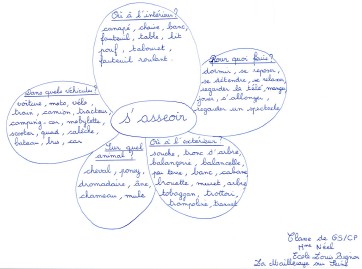 Où à l'intérieur?
canapé, chaise, banc,
fauteuil, table, lit
pouf, tabouret,
fauteuil roulant.
Pour quoi faire?
dormir, se reposer,
se détendre, se relaxer,
regarder la télé, manger
jouer, s'allonger,
regarder un spectacle.
Dans quels véhicules?
voiture, moto, vélo,
train, camion, tracteur,
camping-car, mobylette
scooter, quad, calèche,
bateau, bus, car
s'asseoir
Sur quel
animal?
cheval, poney,
dromadaire, âne,
chameau, mule
Où à l'extérieur?
souche, tronc d'arbre
balançoire, balancelle,
par terre, banc, cabane
brouette, muret, arbre
toboggan, trottoir,
trampoline,
Classe de GS/CP
Mme Néel
Ecole Louis
La Mailleraye sur Seine